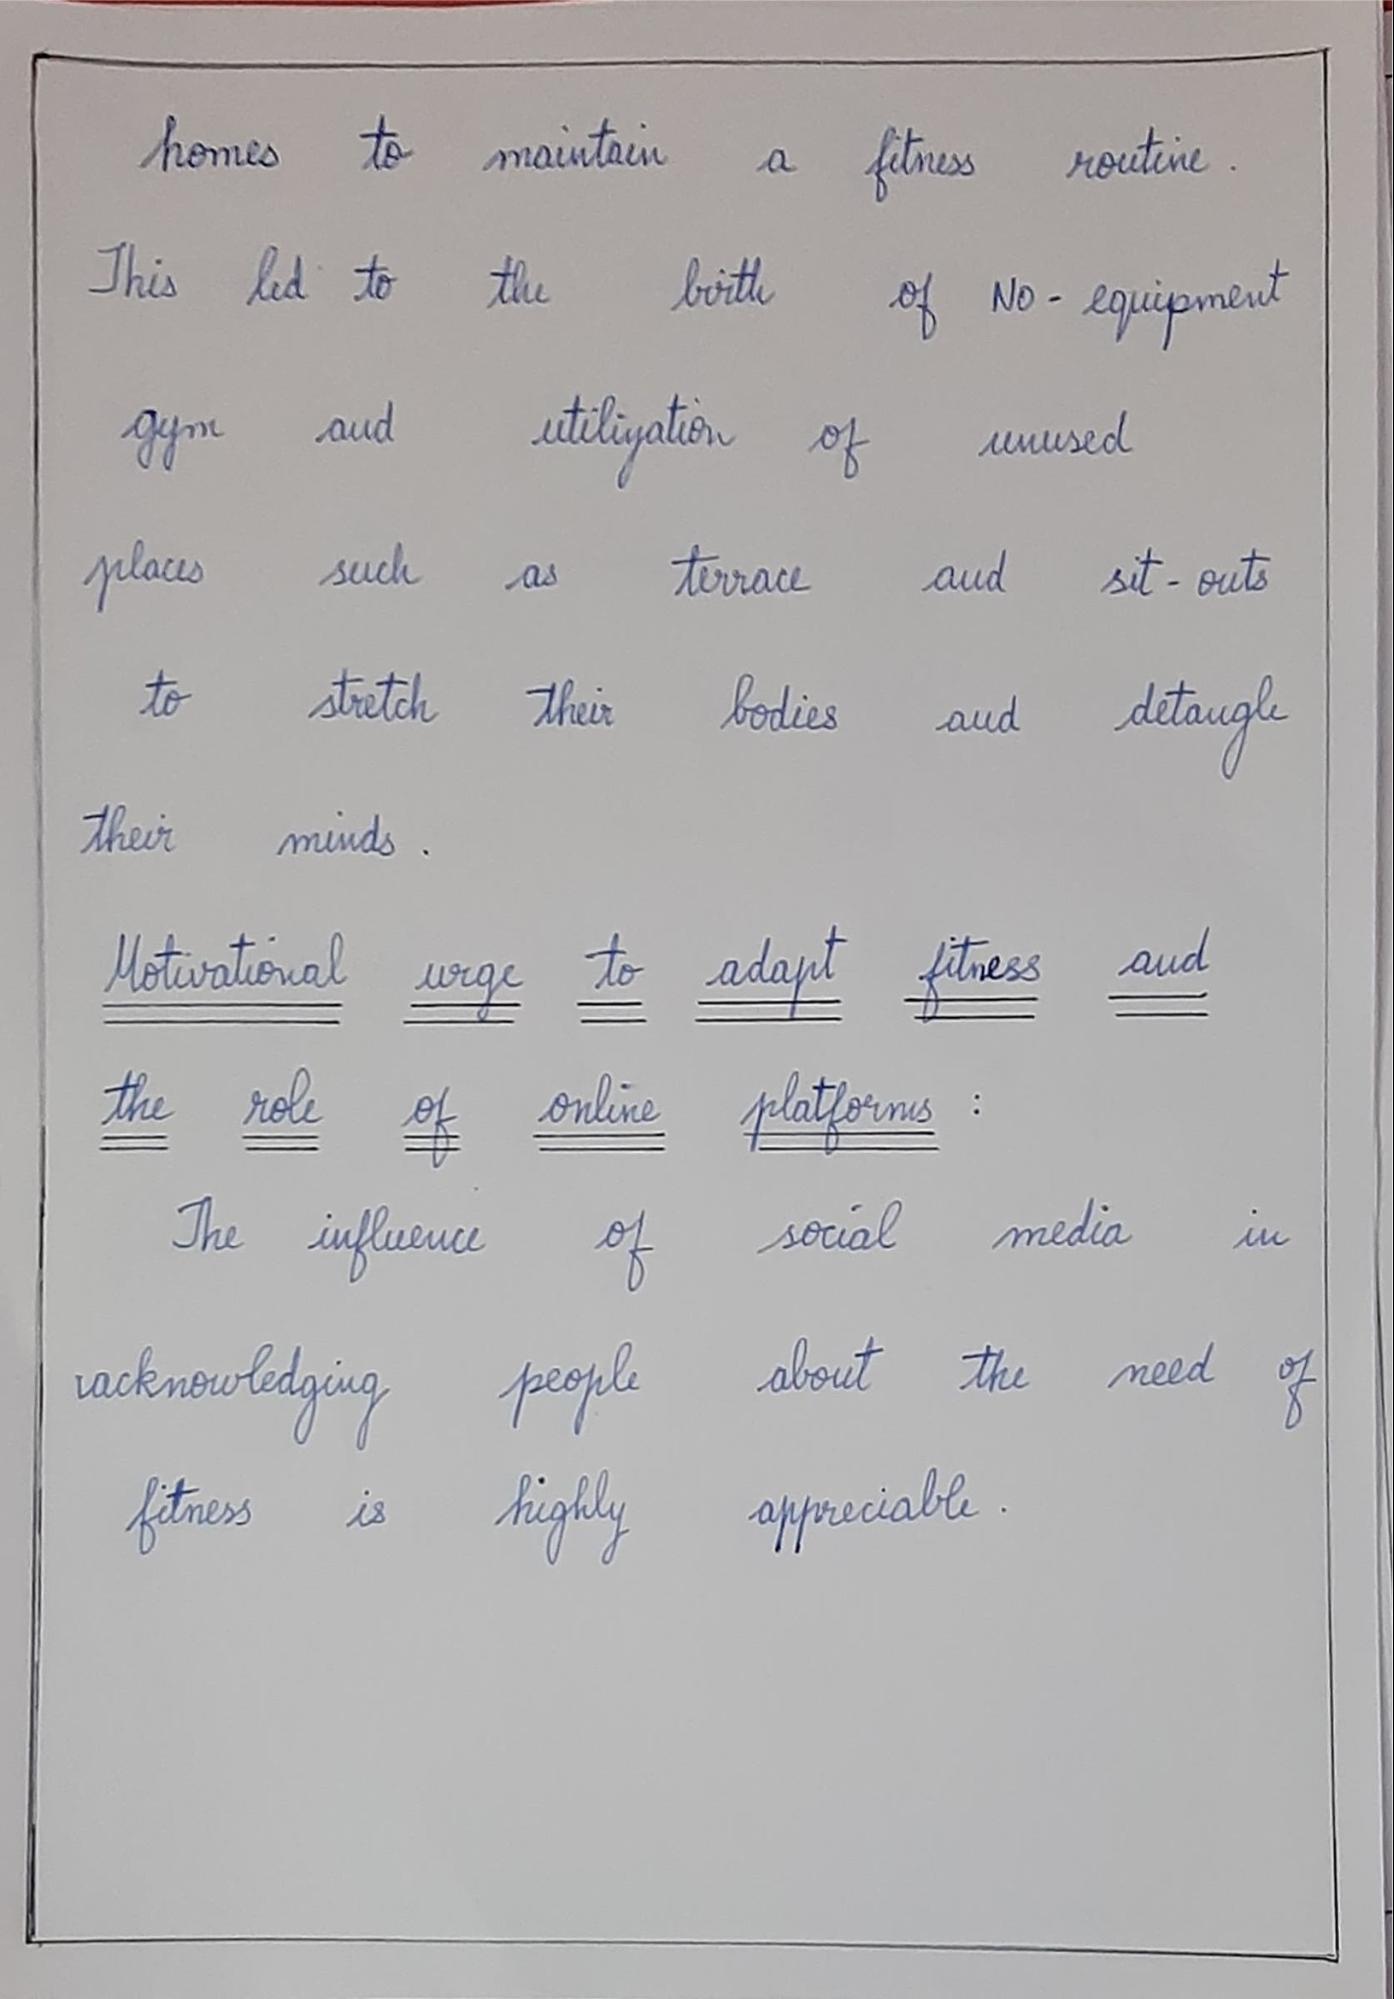 homes to maintain a fitness routine.
This led to the birth of NO-equipment
gym and utilization of unused
places such as terrace and sit-outs
to stretch their bodies and detangle
their minds.
Motivational urge to adapt fitness and
the role of online platforms :
The influence of social media in
acknowledging people about the need of
fitness is highly appreciable.